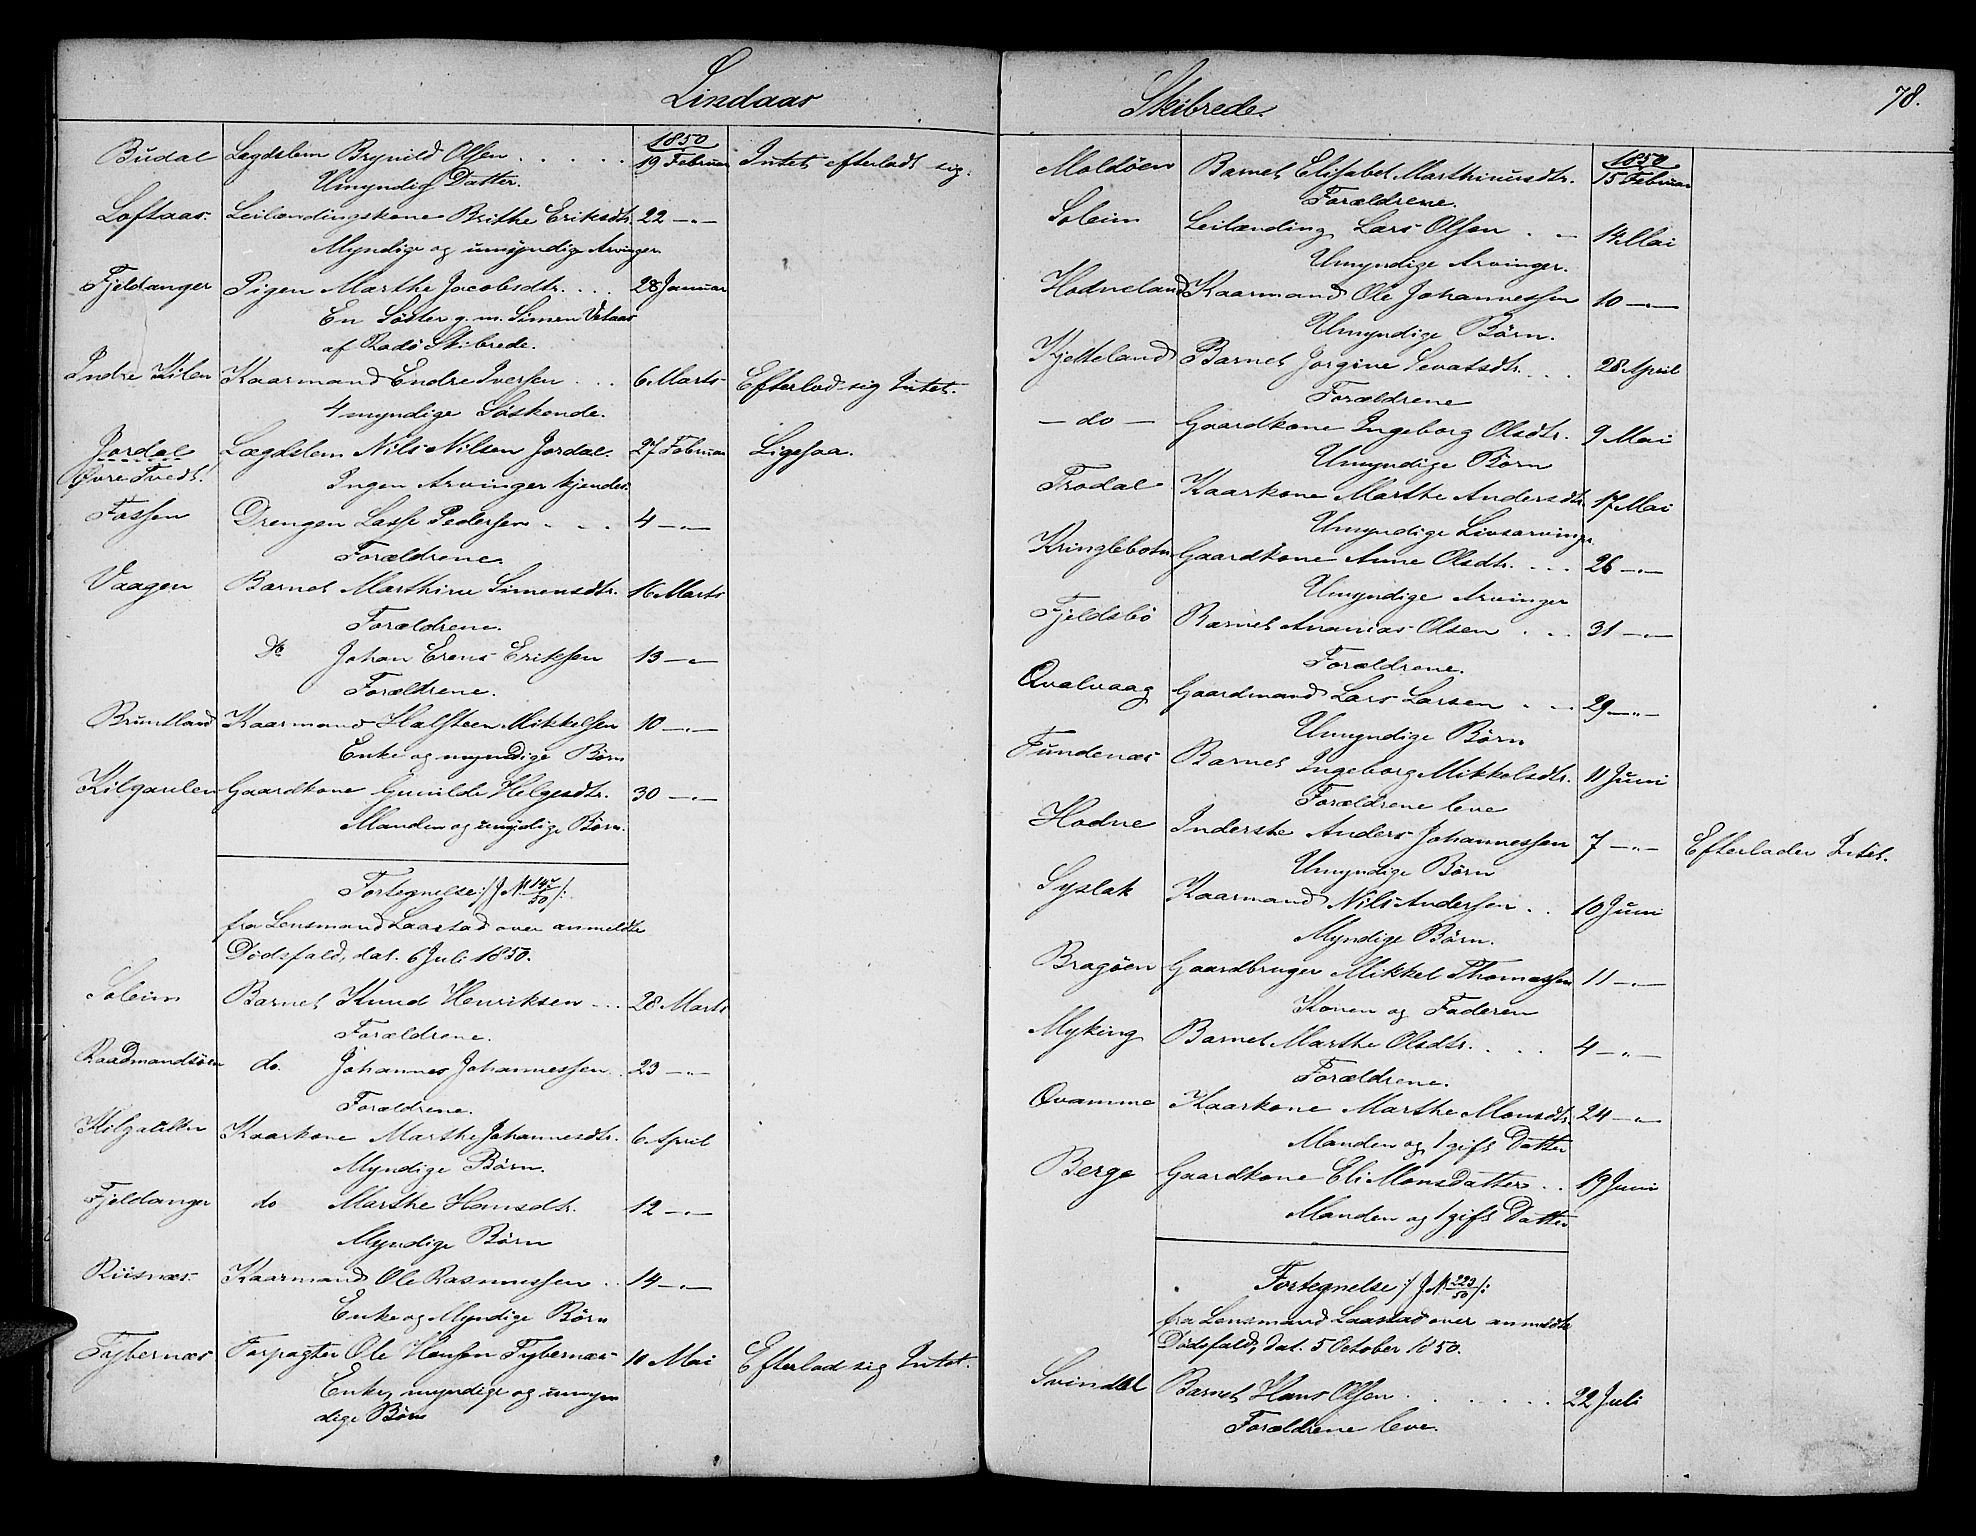 Lindaas
1850
Budal Lægdslem Brynild Olsen . . . . . 19 Februar Intet efterladt sig.
Umyndig Datter.
Loftaas. Leilændingskone Brithe Eriksdtr. 22 -"-
Myndige og umyndige Arvinger.
Fjeldanger Pigen Marthe Jacobsdtr. . . . 28 Januar
En Søster g. m. Simen
af Radø Skibrede.
Indre Kilen Kaarmand Endre Iversen . . . 6 Marts Efterlod sig Intet.
4 myndige Søskende.
Jordal Lægdslem Nils Nilsen Jordal. 27 Februar Ligesaa.
Øvre Tvedt. Ingen Arvinger kjendes.
Fossen Drengen Lasse Pedersen . . . 4 -"-
Forældrene.
Vaagen Barnet Marthine Simensdtr. 16 Marts
Forældrene.
Do Johan Erens Eriksen 13 -"-
Forældrene.
Bruntland Kaarmand Halsteen Mikkelsen 10 -"-
Enke og myndige Børn
Kilgavlen Gaardkone Gunilde Helgesdtr. 30 -"-
Manden og umydige Børn.
Fortegnelse :/ J № 147/50 /:
fra Lensmand Laastad over anmeldte
Dødsfald, dat. 6 Juli 1850.
Soleim Barnet Knud Henriksen . . . 28 Marts
Forældrene.
Raadmandsøen do. Johannes Johannessen . . 23 -"-
Forældrene.
Kilgavlen Kaarkone Marthe Johannesdtr. 6 April
Myndige Børn.
Fjeldanger do Marthe Hansdtr. 12 -"-
Myndige Børn
Riisnæs. Kaarmand Ole Rasmussen . . 14 -"-
Enke og Myndige Børn
Fybernæs Forpagter Ole Hansen Fybernæs 10 Mai Efterlod sig Intet.
Enke, myndige og umyn
dige Børn
Skibrede. 78.
1850
Moldøen Barnet Elisabet Marthinusdtr. 15 Februar
Forældrene.
Soleim Leilænding Lars Olsen . — 14 Mai
Umyndige Arvinger.
Hodneland Kaarmand Ole Johannessen 10 -"-
Umyndige Børn.
Kjelleland Barnet Jorgine Sevatsdtr. . . . 28 April
Forældrene
— do — Gaardkone Ingeborg Olsdtr. 9 Mai
Umyndige Børn
Frodal Kaarkone Marthe Andersdtr. 17 Mai
Umyndige Livsarvinger
Kringlebotn Gaardkone Anne Olsdtr. . . . 26 -"-
Umyndige Arvinger
Fjeldsbø Barnet Ananias Olsen . . . 31 -"-
Forældrene.
Qvalvaag Gaardmand Lars Larsen . . . 29 -"-
Umyndige Børn
Fundenæs Barnet Ingeborg Mikkelsdtr. 11 Juni
Forældrene leve
Hodne Inderste Anders Johannessen 7 -"- Efterlader Intet.
Umyndige Børn
Syslak Kaarmand Nils Andersen . . 10 Juni
Myndige Børn.
Bragøen Gaardbruger Mikkel Thomassen 11 -"-
Konen og Faderen
Myking Barnet Marthe Olsdtr. . . . . 4 -"-
Forældrene.
Qvamme Kaarkone Marthe Monsdtr. 24 -"-
Manden og 1 gift Datter
Berge Gaardkone Eli Monsdatter . . 19 Juni
Manden og 1 gift Datter
Fortegnelse :/ J № 223/50 /:
fra Lensmand Laastad over anmeldte
Dødsfald, dat. 5 October 1850.
Svindal Barnet Hans Olsen . . . . . . 22 Juli
Forældrene leve.